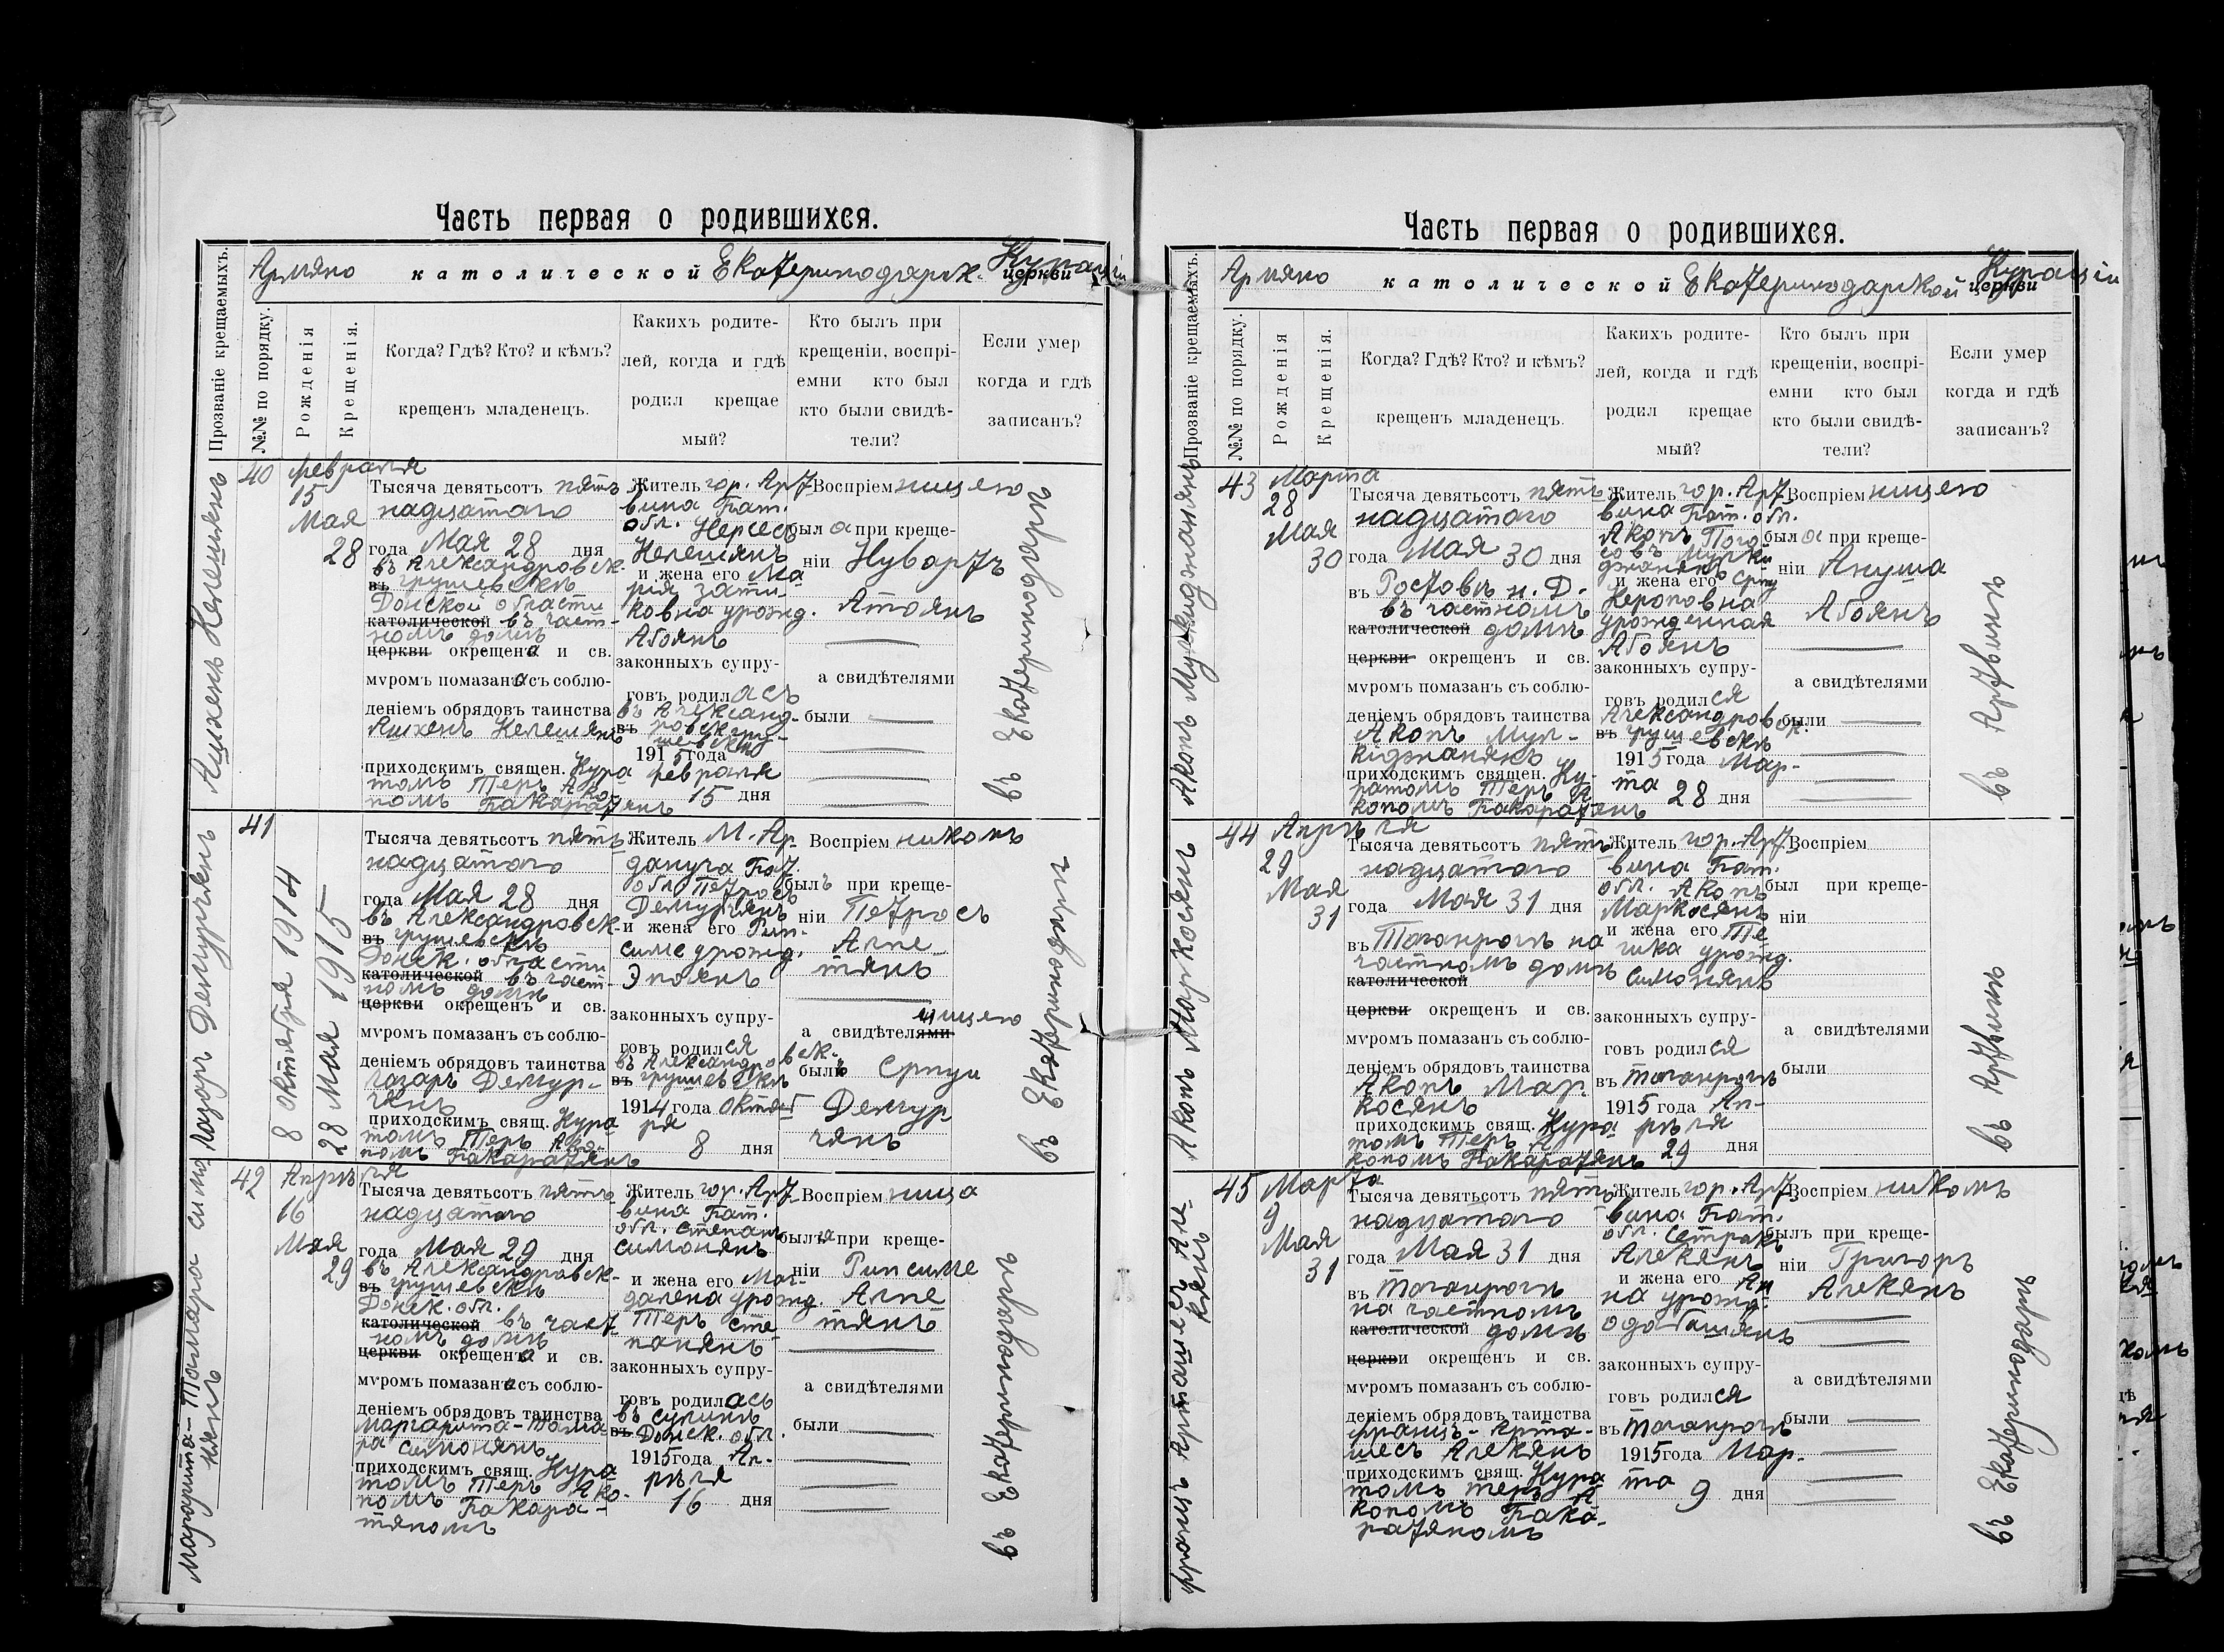 Часть первая о родившихся.
Армяно католической Екатеринодарск. Кураціи церкви
Прозваніе крещаемыхъ.
№№ по порядку.
Рожденія
Крещенія.
Когда? Гдѣ? Кто? и кѣмъ?
крещенъ младенецъ.
Какихъ родите-
лей, когда и гдѣ
родил крещае
мый?
Кто былъ при
крещеніи, воспрі-
емни кто был
кто были свидѣ-
тели?
Если умер
когда и гдѣ
записанъ?
Ашхенъ Келешянъ
40
февраля
15
Мая
28
Тысяча девятьсот пять
надцатаго
года Мая 28 дня
въ Александровск-
въ грушевскѣ
Донской области
католической въ част-
номъ домѣ
церкви окрещена и св.
мѵромъ помазана съ соблю-
деніемъ обрядовъ таинства
Ашхенъ Келешянъ
приходскимъ священ. Кура
томъ Теръ Ако-
помъ Бакаратянъ
Житель гор. Арт-
вина Бат.
обл. Нерсесъ
Келешянъ
и жена его Ма
рія
ковна урожд.
Абоянъ
законныхъ супру-
говъ родилась
въ Александ-
въ ровскгру-
шевскѣ
1915 года
февраля
15 дня
Воспріемницею
была при креще-
ніи Нубартъ
Атоянъ
а свидѣтелями
были
въ Екатеринодаръ
Лазаръ Демурчянъ
41
8 октября 1914
28 Мая 1915
Тысяча девятьсот пять
надцатаго
года Мая 28 дня
въ Александровск-
въ грушевскѣ
Донск. области
католической въ част-
номъ домѣ
церкви окрещенъ и св.
мѵромъ помазанъ съ соблю-
деніемъ обрядовъ таинства
Лазаръ Демур-
чянъ
приходскимъ свящ. Кура
томъ Теръ Ако-
помъ Бакаратянъ
Житель М. Ар-
дануча Бат.
обл. Петросъ
Демурчянъ
и жена его Рип-
симе урожд.
Эпоянъ
законныхъ супру-
говъ родился
въ Александровск-
въ грушевскѣ
1914 года октяб
ря
8 дня
Воспріемникомъ
былъ при креще-
ніи Петросъ
Алпе-
тянъ
ницею
а свидѣтелями
были Српуи
Демур
чянъ
въ Екатеринодаръ
Маргарита-Тамара Симо
нянъ
42
Апрѣля
16
Мая
29
Тысяча девятьсот пять
надцатаго
года Мая 29 дня
въ Александровск-
въ грушевскѣ
Донск. обл.
католической въ част
номъ домѣ
церкви окрещена и св.
мѵромъ помазана съ соблю-
деніемъ обрядовъ таинства
Маргарита-Тама-
ра Симонянъ
приходскимъ свящ. Кура
томъ Теръ Ако-
помъ Бакара-
тяномъ
Житель гор. Арт-
вина Бат.
обл. Степанъ
Симонянъ
и жена его Маг-
далена урожд.
Теръ Сте
панянъ
законныхъ супру-
говъ родилась
въ Сулинѣ
въ Донск. обл.
1915 года Ап-
рѣля
16 дня
Воспріемница
была при креще-
ніи Рипсиме
Алпе
тянъ
а свидѣтелями
были
въ Екатеринодаръ
Часть первая о родившихся.
Армяно католической Екатеринодарской Кураціи церкви
Прозваніе крещаемыхъ.
№№ по порядку.
Рожденія
Крещенія.
Когда? Гдѣ? Кто? и кѣмъ?
крещенъ младенецъ.
Какихъ родите-
лей, когда и гдѣ
родил крещае
мый?
Кто былъ при
крещеніи, воспрі-
емни кто был
кто были свидѣ-
тели?
Если умер
когда и гдѣ
записанъ?
Акопъ Мулкиджанянъ
43
Марта
28
Мая
30
Тысяча девятьсот пять
надцатаго
года Мая 30 дня
въ Ростовѣ н. Д.
въ частномъ
католической домѣ
церкви окрещенъ и св.
мѵромъ помазанъ съ соблю-
деніемъ обрядовъ таинства
Акопъ Мул-
киджанянъ
приходскимъ священ. Ку-
ратомъ Теръ А-
копомъ Бакаратянъ
Житель гор. Арт-
вина Бат. обл.
Акопъ Пого
совъ Мулки
джанянъ
и жена его Српу
Кероповна
урожденная
Абоянъ
законныхъ супру-
говъ родился
Александровск.
въ грушевскѣ
1915 года Мар-
та 28 дня
Воспріемницею
была при креще-
ніи Ануша
Абоянъ
а свидѣтелями
были
въ Артвинъ
Акопъ Маркосянъ
44
Апрѣля
29
Мая
31
Тысяча девятьсот пять
надцатаго
года Мая 31 дня
въ Таганрогѣ на
частномъ домѣ
католической
церкви окрещенъ и св.
мѵромъ помазанъ съ соблю-
деніемъ обрядовъ таинства
Акопъ Мар-
косянъ
приходскимъ свящ. Кура
томъ Теръ А-
копомъ Бакаратянъ
Житель гор. Арт-
вина Бат.
обл. Акопъ
Маркосянъ
и жена его
урожд.
Симонянъ
законныхъ супру-
говъ родился
въ Таганрогѣ
1915 года Ап-
рѣля
29 дня
Воспріем
был при креще-
ніи
а свидѣтелями
были
въ Артвинъ
Францъ Арташесъ Але-
кянъ
45
Марта
9
Мая
31
Тысяча девятьсот пять
надцатаго
года Мая 31 дня
въ Таганрогѣ
на частномъ
католической домѣ
церкви окрещенъ и св.
мѵромъ помазанъ съ соблю-
деніемъ обрядовъ таинства
Францъ-Арта-
шесъ Алекянъ
приходскимъ свящ. Кура
томъ Теръ А-
копомъ Бака-
ратяномъ
Житель гор. Арт-
вина Бат.
обл. Сетракъ
Алекянъ
и жена его Ан
на урожд.
Одабашянъ
законныхъ супру-
говъ родился
въ Таганрогѣ
1915 года Мар-
та 9 дня
Воспріемникомъ
былъ при креще-
ніи Григоръ
Алекянъ
а свидѣтелями
были
въ Екатеринодаръ